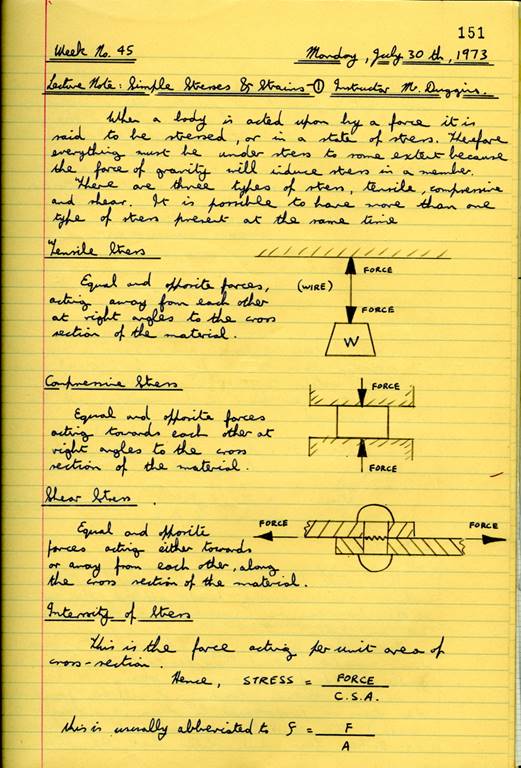 151
Week No. 45 Monday, July 30 th, 1973
Lecture Note: Simple Stresses & Strains - ① Instructor M. Duggins.
When a body is acted upon by a force it is
said to be stressed, or in a state of stress. Therefore
everything must be under stress to some extent because
the force of gravity will induce stress in a member.
There are three types of stress, tensile, compressive
and shear. It is possible to have more than one
type of stress present at the same time
Tensile Stress
Equal and opposite forces,
acting away from each other
at right angles to the cross
section of the material.
(WIRE)
FORCE
FORCE
W
Compressive Stress
Equal and opposite forces
acting towards each other at
right angles to the cross
section of the material.
FORCE
FORCE
Shear Stress.
Equal and opposite
forces acting either towards
or away from each other, along
the cross section of the material.
FORCE
FORCE
Intensity of Stress
This is the force acting per unit area of
cross-section.
Hence, STRESS = FORCE
C.S.A.
this is usually abbreviated to = F
A